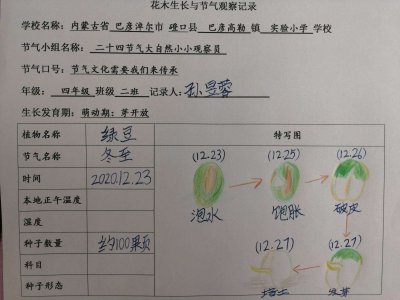 花木生长与节气观察记录
学校名称：内蒙古省 巴彦淖尔市 磴口县 巴彦高勒 镇 实验小学 学校
节气小组名称：二十四节气大自然小小观察员
节气口号：节气文化需要我们来传承
年级：四年级 班级 二班 记录人：孙旻蓉
生长发育期：萌动期：芽开放
植物名称 绿豆 特写图
节气名称 冬至 (12.23) (12.25) (12.26)
时间 2020.12.23
本地正午温度 泡水 饱胀 破皮
湿度
种子数量 约100颗 (12.27) (12.27)
科目
种子形态 发芽